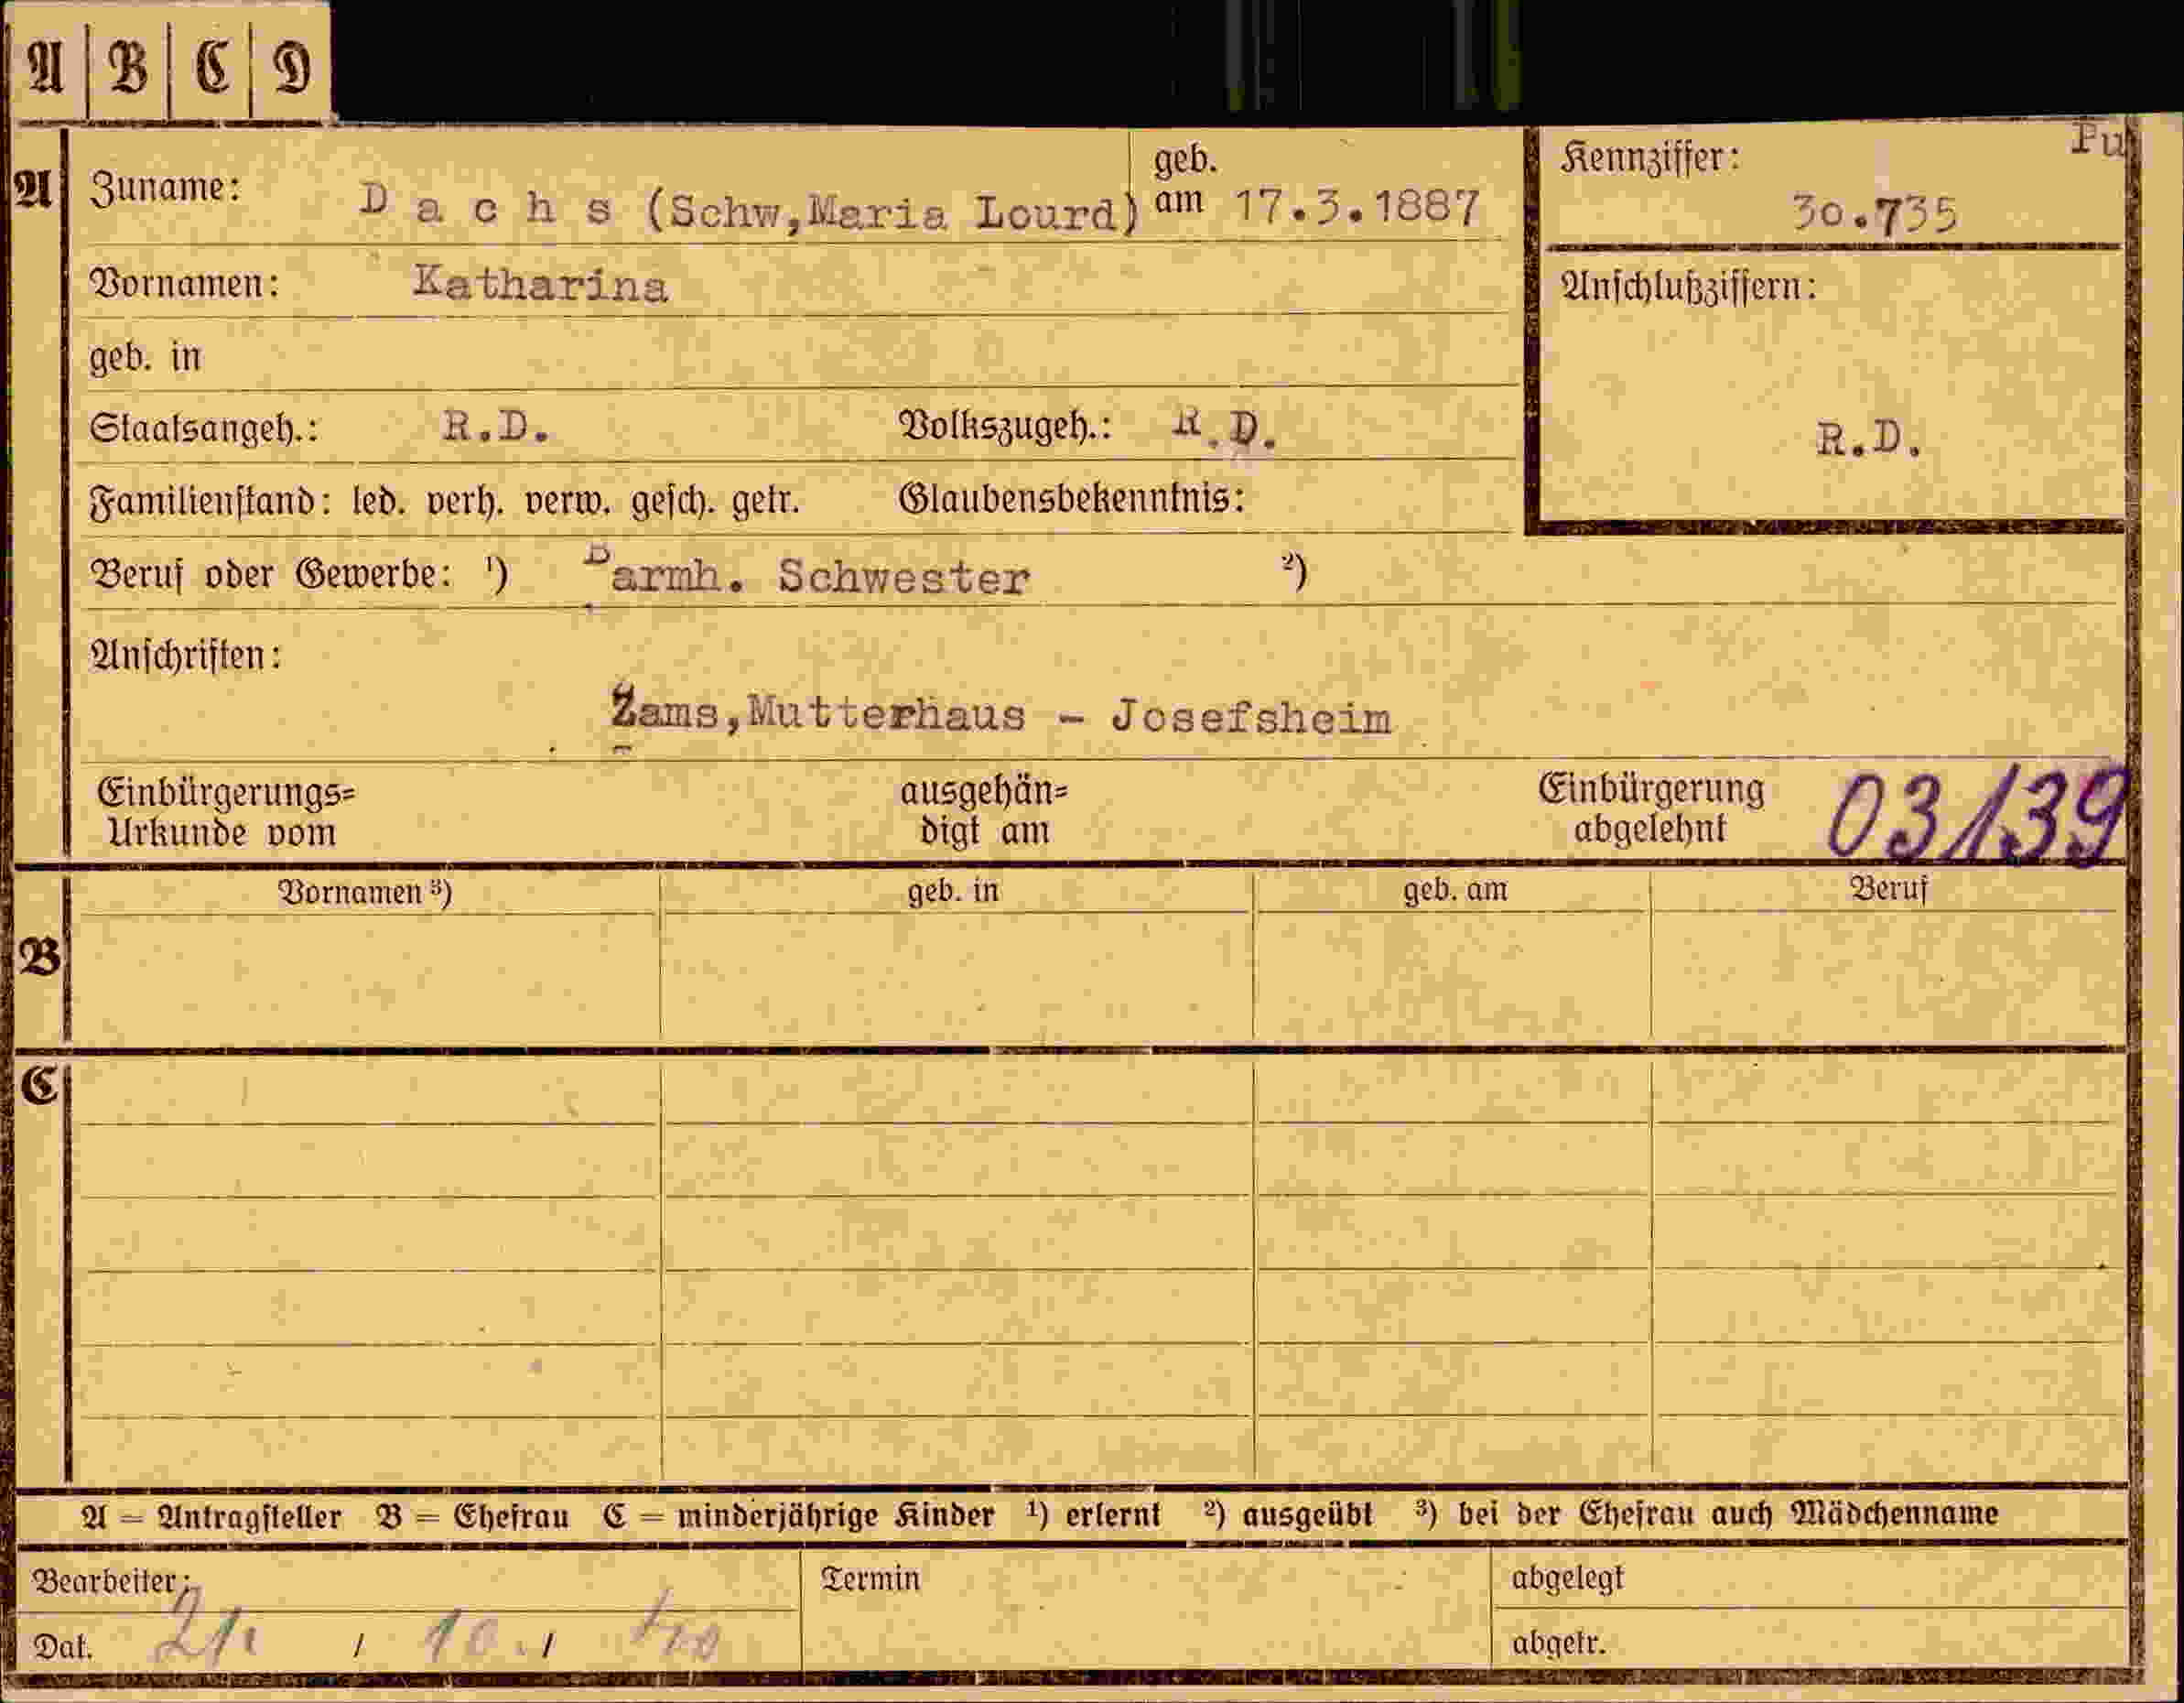 A B C D
A Zuname: D a c h s (Schw,Maria Lourd) geb. am 17.3.1887
Kennziffer: Pu
30.735
Vornamen: Katharina
Anschlußziffern:
geb. in
Staatsangeh.: R.D. Volkszugeh.: R.D.
R.D.
Familienstand: led. verh. verw. gesch. getr. Glaubensbekenntnis:
Beruf oder Gewerbe: ¹) Barmh. Schwester ²)
Anschriften:
Zams,Mutterhaus - Josefsheim
Einbürgerungs= ausgehän= Einbürgerung 03139
Urkunde vom digt am abgelehnt
Vornamen ³) geb. in geb. am Beruf
B
C
A = Antragsteller B = Ehefrau C = minderjährige Kinder ¹) erlernt ²) ausgeübt ³) bei der Ehefrau auch Mädchenname
Bearbeiter: Termin abgelegt
Dat. 21. / 10. / 40 abgetr.